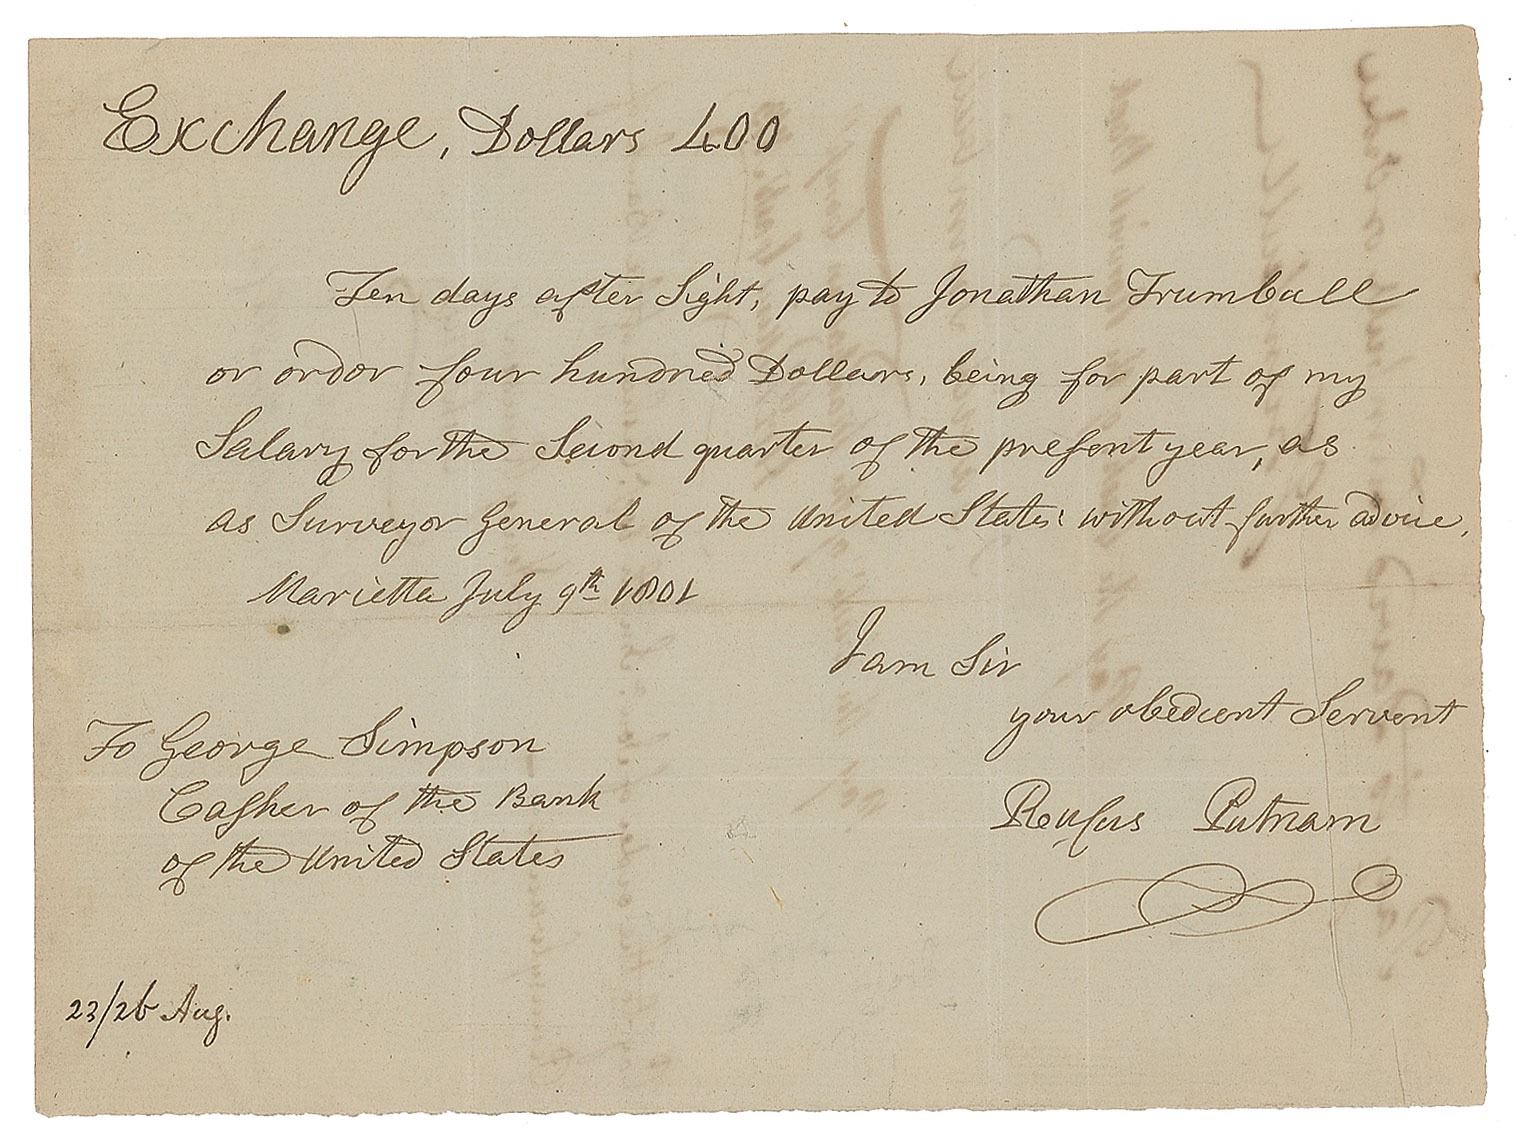 Exchange, Dollars 400
Ten days after Sight, pay to Jonathan Trumbull
or ordor four hundred Dollars, being for part of my
Salary for the Second quarter of the presont year, as
as Surveyor General of the United States: without further advice,
Marietta July 9th 1801
I am Sir
your obedient Servent
To George Simpson
Casher of the Bank
of the United States
Rufus Putnam
23/26 Aug.